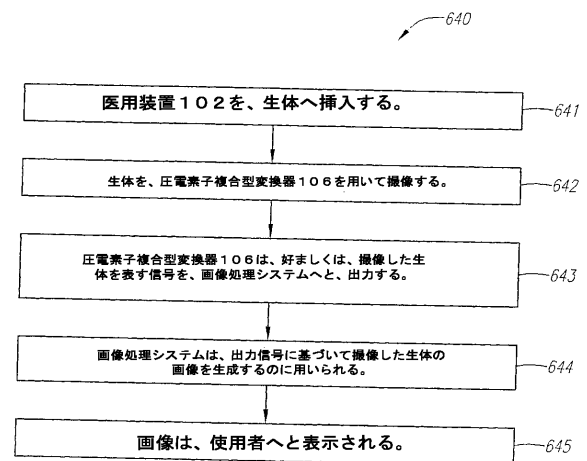 640
医用装置102を、生体へ挿入する。
641
生体を、圧電素子複合型変換器106を用いて撮像する。
642
圧電素子複合型変換器106は、好ましくは、撮像した生
体を表す信号を、画像処理システムへと、出力する。
643
画像処理システムは、出力信号に基づいて撮像した生体の
画像を生成するのに用いられる。
644
画像は、使用者へと表示される。
645